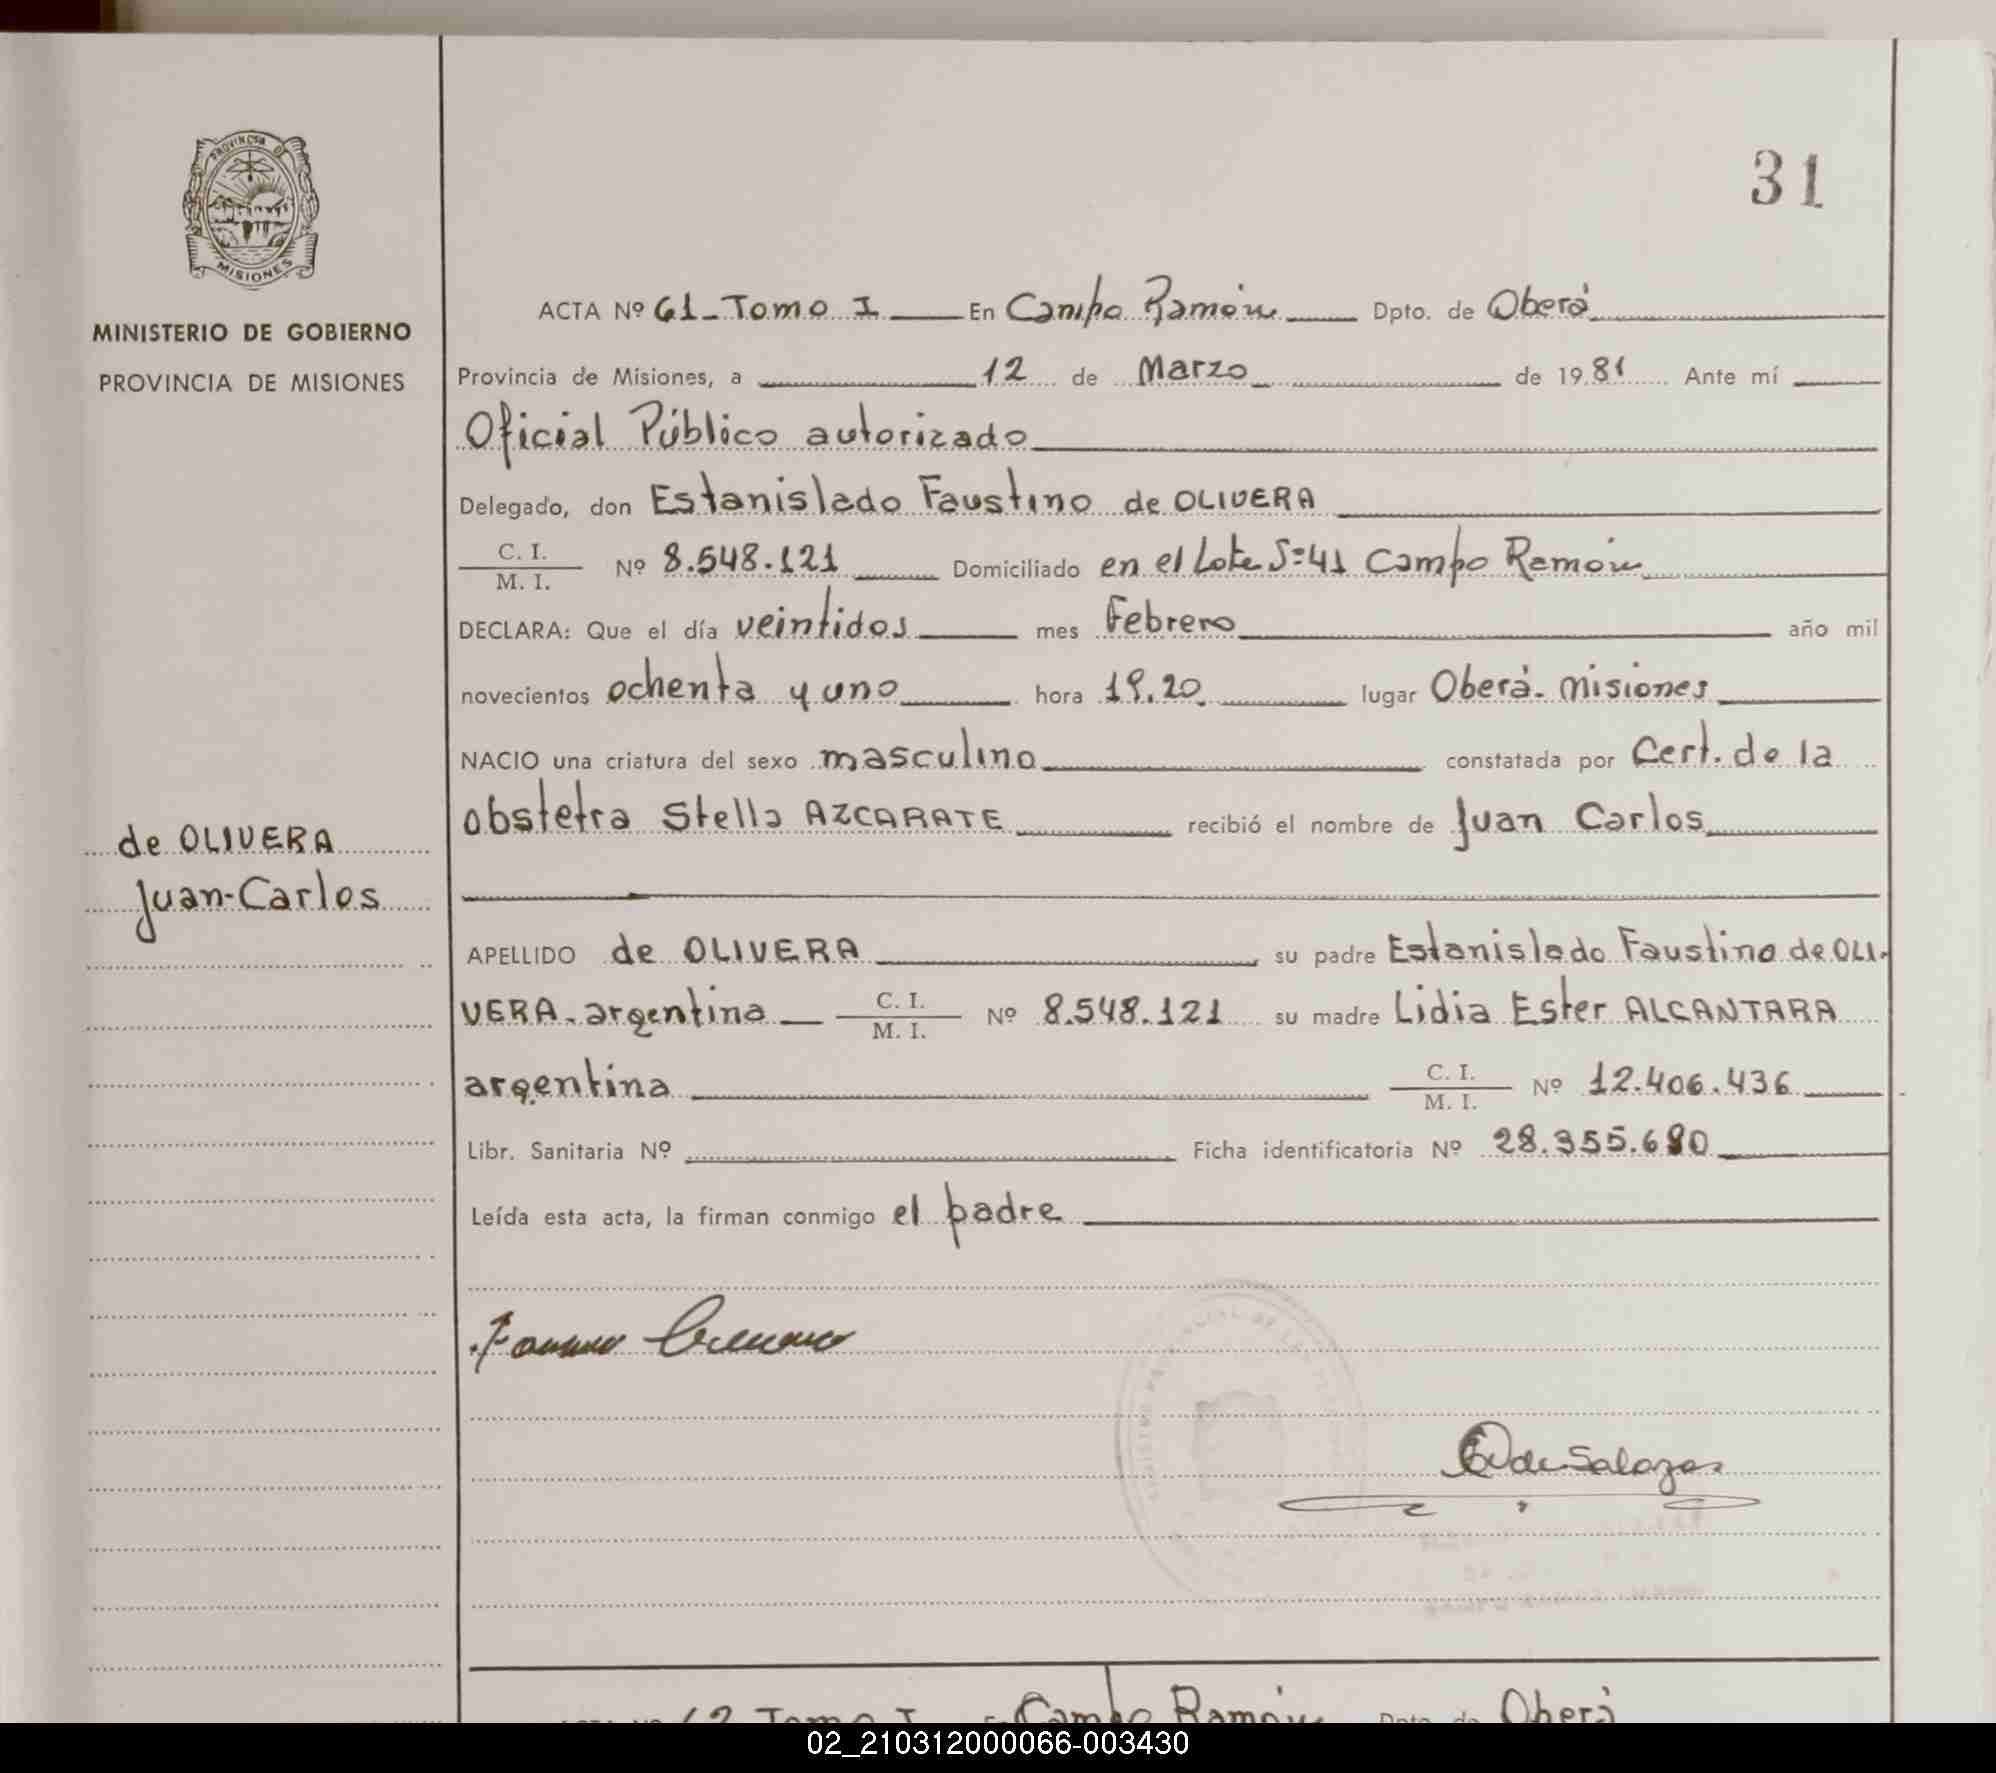 31
PROVINCIA DE
MISIONES
MINISTERIO DE GOBIERNO
PROVINCIA DE MISIONES
ACTA Nº 61_ Tomo I En Campo Ramón Dpto. de Oberá
Provincia de Misiones, a 12 de Marzo de 1981 Ante mí
Oficial Público autorizado
Delegado, don Estanislado Faustino de OLIVERA
C. I.
M. I. Nº 8.548.121 Domiciliado en el Lote S=41 Campo Ramón
DECLARA: Que el día veintidos mes Febrero año mil
novecientos ochenta y uno hora 19.20 lugar Oberá- Misiones
NACIO una criatura del sexo masculino constatada por Cert. de la
obstetra Stella AZCARATE recibió el nombre de Juan Carlos
de OLIVERA
Juan-Carlos
APELLIDO de OLIVERA su padre Estanislado Faustino de OLI-
VERA - argentina C. I.
M. I. Nº 8.548.121 su madre Lidia Ester ALCANTARA
argentina C. I.
M. I. Nº 12.406.436
Libr. Sanitaria Nº Ficha identificatoria Nº 28.355.680
Leída esta acta, la firman conmigo el padre
de Salazar
62 Tomo I Campo Ramón Dpto. de Oberá
02_210312000066-003430